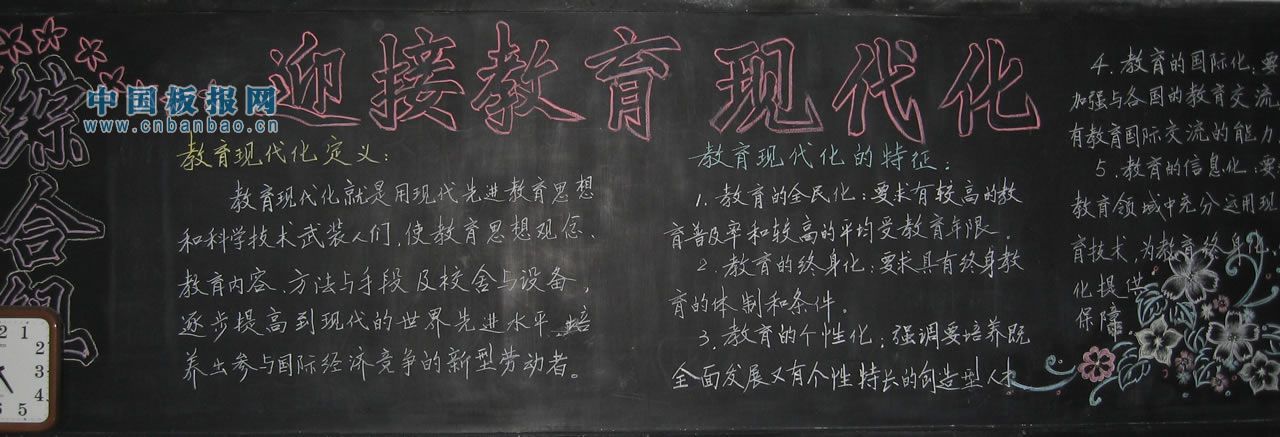 综合组
中国板报网
www.cnbanbao.cn
迎接教育现代化
教育现代化定义：
教育现代化就是用现代先进教育思想
和科学技术武装人们，使教育思想观念、
教育内容、方法与手段及校舍与设备，
逐步提高到现代的世界先进水平，培
养出参与国际经济竞争的新型劳动者。
教育现代化的特征：
1．教育的全民化：要求有较高的教
育普及率和较高的平均受教育年限。
2．教育的终身化：要求具有终身教
育的体制和条件。
3．教育的个性化：强调要培养既
全面发展又有个性特长的创造型人才
4．教育的国际化：要
加强与各国的教育交流
有教育国际交流的能力
5．教育的信息化：要
教育领域中充分运用现
育技术，为教育终身化、
化提供
保障。
2
1
2
3
4
5